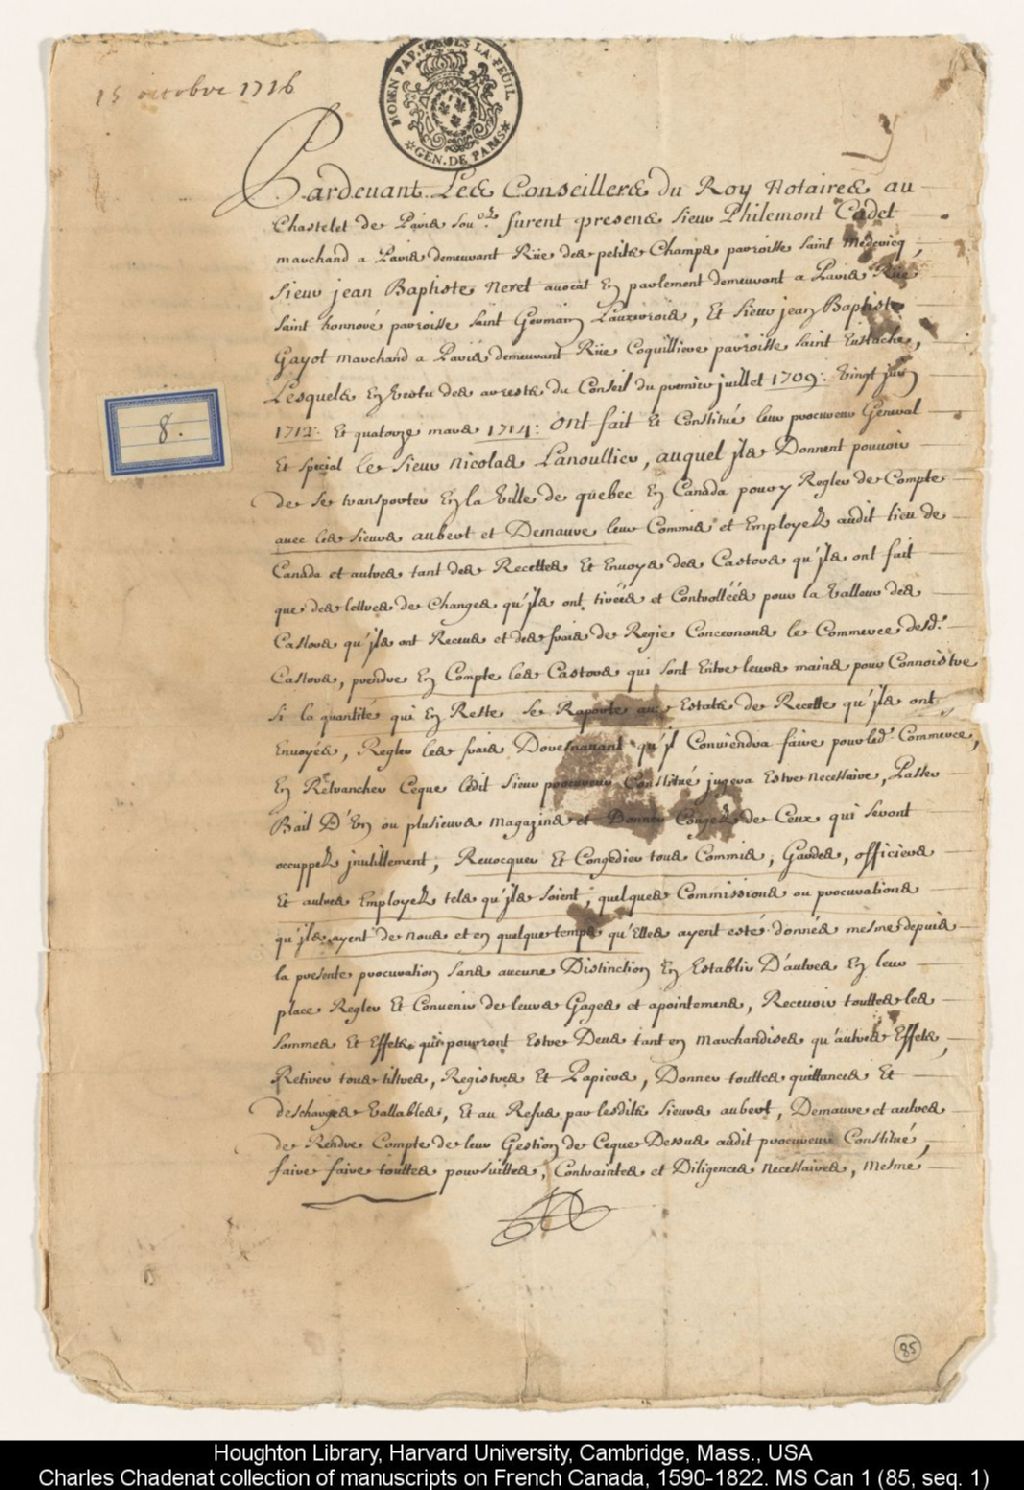 15 octobre 1716
MOIEN PAP. IIII SOLS LA FEUIL
GEN. DE PARIS
Pardeuant Les Conseillers du Roy Notaires au
Chastelet de Paris sou.ez furent presens Sieur Philemont Cadet
marchand a Paris demeurant Rüe des petits Champs parroisse Saint Medericq,
Sieur jean Baptiste Neret auocat En parlement demeurant a Paris Rüe
Saint honnoré parroisse Saint Germain Lauxerrois, Et Sieur jean Baptiste
Gayot marchand a Paris demeurant Rüe Coquilliere parroisse Saint Eustache,
Lesquels En Vertu des arrests du Conseil du premier juillet 1709: Vingt juin
1712: Et quatorze mars 1714: ont fait Et Constitué leur procureur General
Et special le Sieur Nicolas Lanoullier, auquel jls Donnent pouvoir
de se transporter En la Ville de quebec En Canada pour y Regler de Compte
auec les Sieurs aubert et Demaure leur Commis et Employez audit lieu de
Canada et autres tant des Recettes Et Enuoys des Castors qu'jls ont fait
que des lettres de Changes qu'jls ont tirées et Controllées pour la Valleur des
Castors qu'jls ont Receus et des frais de Regie Concernons le Commerce desd.
Castors, prendre En Compte les Castors qui sont Entre leurs mains pour Connoistre
Si la quantité qui En Reste se Raporte aux Estats de Recette qu'jls ont
Enuoyés, Regler les frais Doresnauant qu'jl Conviendra faire pour led. Commerce,
En Retrancher Ceque ledit Sieur procureur Constitué jugera Estre necessaire, Passer
Bail D'En ou plusieurs magazins et Donner Congez de Ceux qui Seront
occuppez jnutillement, Reuocquer Et Congedier tous Commis, Gardes, officiers
Et autres Employez tels qu'jls soient, quelques Commissions ou procurations
qu'jls ayent de nous et en quelque temps qu'Elles ayent esté donnés mesme depuis
la presente procuration sans aucune Distinction En Establir D'autres En leur
place Regler Et Conuenir de leurs Gages et apointemens, Receuoir touttes les
Sommes Et Effets qui pourront Estre Deus tant en Marchandises qu'autres Effets,
Retirer tous tiltres, Registres Et Papiers, Donner touttes quittances Et
descharges Vallables, Et au Refus par lesdits Sieurs aubert, Demaure et autres
de Rendre Compte de leur Gestion de Ceque Dessus audit procureur Constitué,
faire faire touttes poursuittes, Contraintes et Diligences necessaires, mesme
8.
85
Houghton Library, Harvard University, Cambridge, Mass., USA
Charles Chadenat collection of manuscripts on French Canada, 1590-1822. MS Can 1 (85, seq. 1)